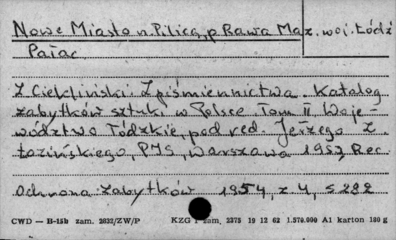 Nowe Miasto n. Pilicą, p Rawa Maz. woj. Łódź
Pałac
Z Ciekliński Z piśmiennictwa. Katalog
zabytków sztuki w Polsce Tom II Woje-
wództwo Łódzkie, pod red. Jerzego Z.
Łozińskiego, PIS, Warszawa 1953, Rec
Ochrona Zabytków 1954, z 4, s 282
CWD — II-15b zam. 2832/ZW/P KZG 1 zam. 2375 19 12 62 1.570.000 A1 karton 180 g